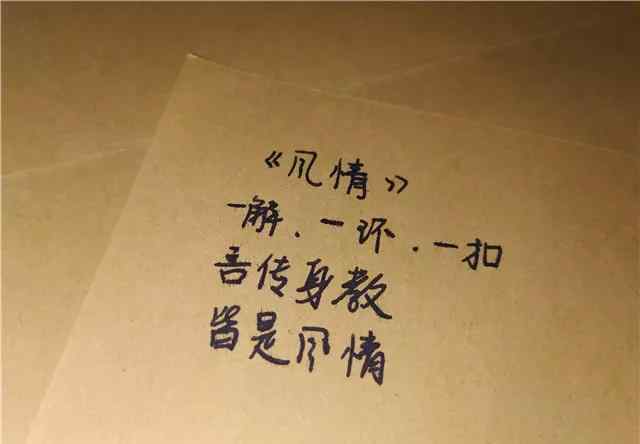 《风情》
一解.一环.一扣
吾传身教
皆是风情